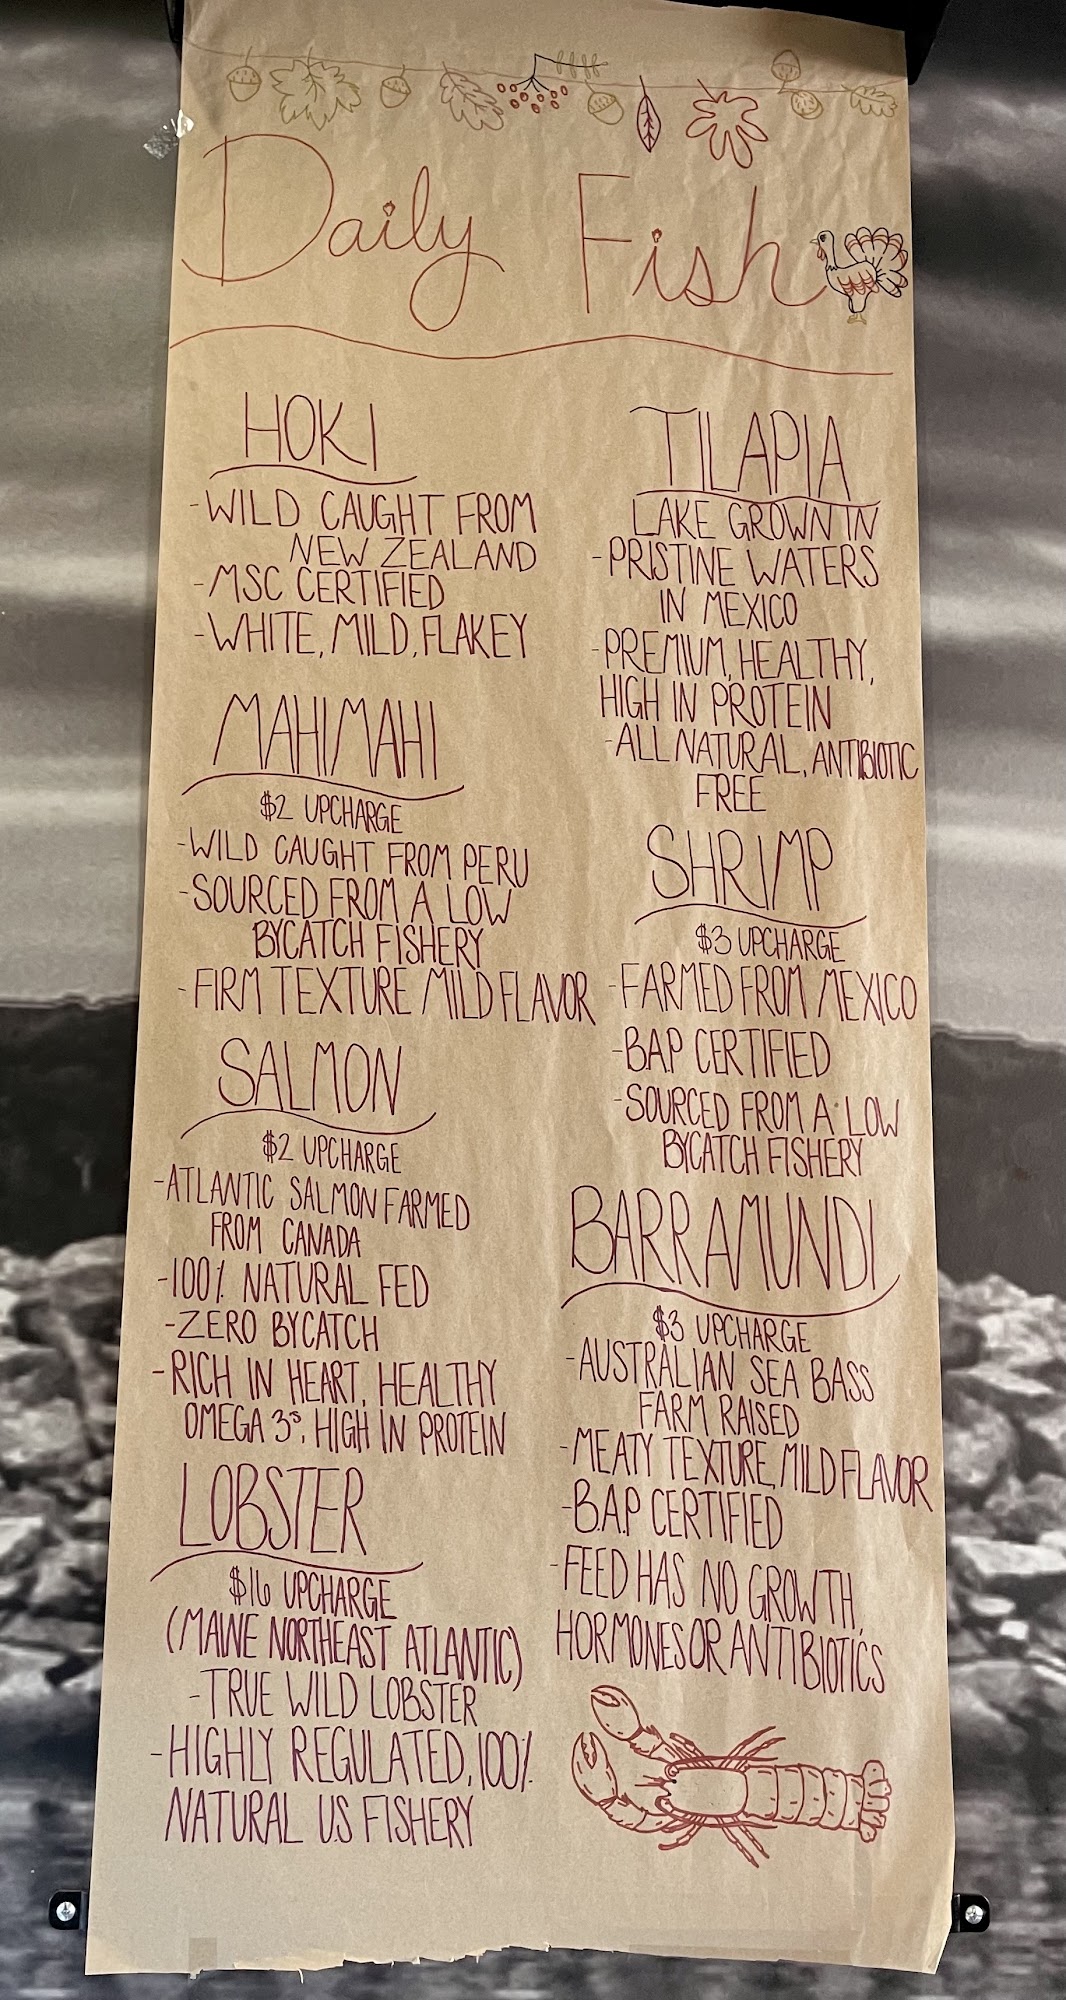 Daily Fish
HOKI
-WILD CAUGHT FROM
NEW ZEALAND
-MSC CERTIFIED
-WHITE, MILD, FLAKEY
MAHIMAHI
$2 UPCHARGE
-WILD CAUGHT FROM PERU
-SOURCED FROM A LOW
BYCATCH FISHERY
-FIRM TEXTURE MILD FLAVOR
SALMON
$2 UPCHARGE
-ATLANTIC SALMON FARMED
FROM CANADA
-100% NATURAL FED
-ZERO BYCATCH
-RICH IN HEART, HEALTHY
OMEGA 3s, HIGH IN PROTEIN
LOBSTER
$16 UPCHARGE
(MAINE NORTHEAST ATLANTIC)
-TRUE WILD LOBSTER
-HIGHLY REGULATED, 100%
NATURAL US FISHERY
TILAPIA
LAKE GROWN IN
-PRISTINE WATERS
IN MEXICO
-PREMIUM, HEALTHY,
HIGH IN PROTEIN
-ALL NATURAL, ANTIBIOTIC
FREE
SHRIMP
$3 UPCHARGE
-FARMED FROM MEXICO
-B.A.P CERTIFIED
-SOURCED FROM A LOW
BYCATCH FISHERY
BARRAMUNDI
$3 UPCHARGE
-AUSTRALIAN SEA BASS
FARM RAISED
-MEATY TEXTURE, MILD FLAVOR
-B.A.P CERTIFIED
-FEED HAS NO GROWTH,
HORMONES OR ANTIBIOTICS